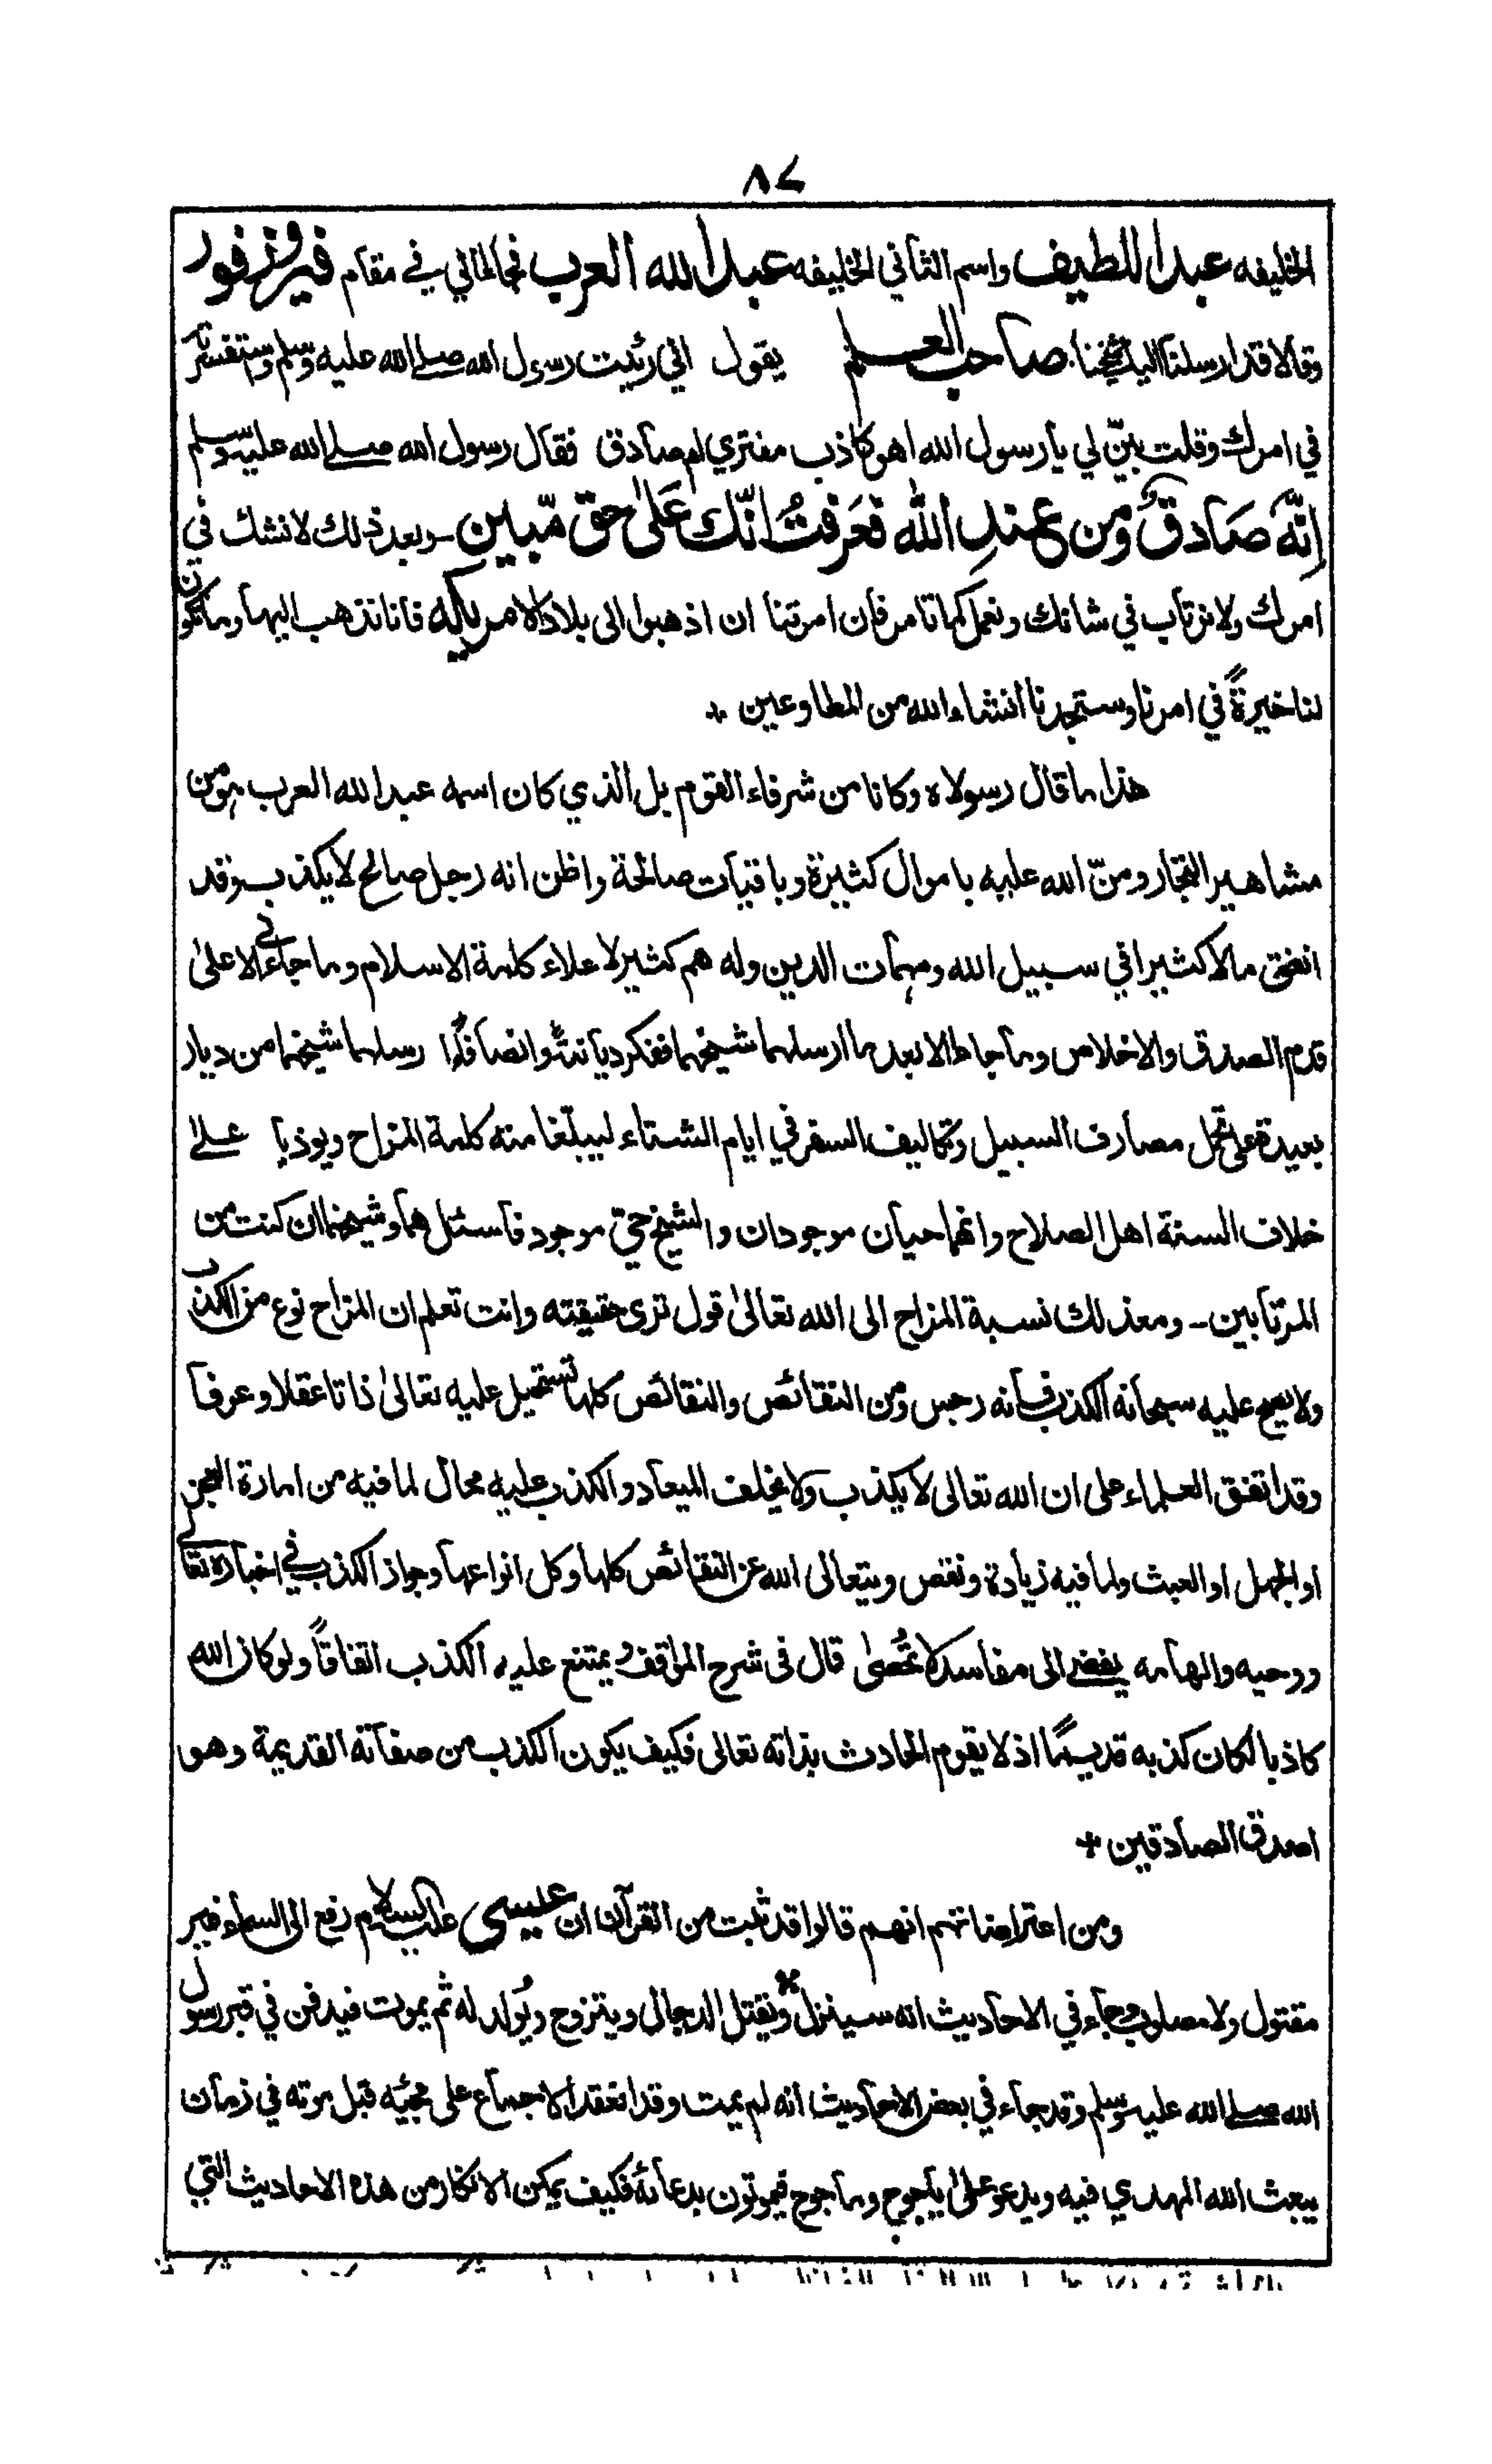 ٨٤
الخليفه عبد اللطيف واسم الثاني الخليفه عبد الله العرب فجالحاني في مقام فيروزفور
وقالا قد ارسلنا اليك شيخنا صاحب العلم يقول اني رئيت رسول الله صلے الله عليه وسلم واستفسرته
في امرك وقلت بيّن لي يا رسول الله اهو كاذب مفتري ام صادق فقال رسول الله صلے الله عليه وسلم
اِنَّهُ صَادِقٌ وَّمِن عِندِ اللّٰه فَعَرفتُ انّك عَلىٰ حق مّبين - وبعد ذلك لا نشك في
امرك ولا نرتاب في شانك ونعمل كما تامر فان امرتنا ان اذهبوا الى بلاد الامريكه فانا نذهب اليها وما تكون
لنا خيرةٌ في امرنا وستجدنا انشاء الله من المطاوعين +
هذا ما قال رسولاه وكانا من شرفاء القوم بل الذي كان اسمه عبد الله العرب هو من
مشاهير التجار ومنّ الله عليه باموال كثيرة وباقيات صالحة واظن انه رجل صالح لا يكذب وقد
انفق مالا كثيرا في سبيل الله ومهمات الدين وله هم كثير لاعلاء كلمة الاسلام وما جاءني الا على
قدم الصدق والاخلاص وما جاءا الا بعد ما ارسلهما شيخهما ففكر ديانتًا وانصافًا ارسلهما شيخهما من ديار
بعيدة على تحمل مصارف السبيل وتكاليف السفر في ايام الشتاء ليبلّغا منه كلمة المزاح ويوذيا علے
خلاف السنة اهل الصلاح وانهما حيان موجودان والشيخ حيّ موجود فاسئل هما وشيخهما ان كنت من
المرتابين - ومعذلك نسبة المزاح الى الله تعالىٰ قول ترى حقيقته وانت تعلم ان المزاح نوع من الكذب
ولا يصح عليه سبحانه الكذب فانه رجس ومن النقائص والنقائص كلها تستحيل عليه تعالىٰ ذاتا عقلا وعرفا
وقد اتفق العلماء على ان الله تعالى لا يكذب ولا يخلف الميعاد والكذب عليه محال لما فيه من امارة العجز
او الجهل او العبث ولما فيه زيادة ونقص ويتعالى الله عن النقائص كلها وكل انواعها وجواز الكذب في اخباره تعالى
ووحيه والهامه يفضے الى مفاسد لا تُحصىٰ قال فى شرح المواقف ويمتنع عليه الكذب اتفاقاً ولو كان الله
كاذبا لكان كذبه قديمًا اذ لا يقوم الحادث بذاته تعالى فكيف يكون الكذب من صفاته القديمة وهو
اصدق الصادقين +
ومن اعتراضاتهم انهم قالوا قد ثبت من القرآن ان عيسى عليه السلام رفع الى السماء غير
مقتول ولا مصلوب وجاء في الاحاديث انه سينزل ويقتل الدجال ويتزوج ويُولد له ثم يموت فيدفن في قبر رسول
الله صلے الله عليه وسلم وقد جاء في بعض الاحاديث انه لم يمت وقد انعقد الاجماع على مجيّه قبل موته في زمان
يبعث الله المهدي فيه ويدعو على ياجوج وماجوج فيموتون بدعائه فكيف يمكن الانكار من هذه الاحاديث التي